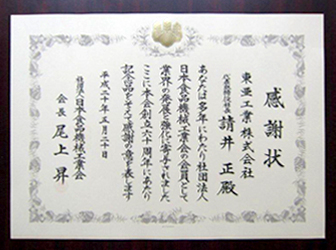 感謝状
東亜工業株式会社
代表取締役社長 請井 正殿
あなたは多年にわたり社団法人
日本食品機械工業会の会員として
業界の発展と強化に寄与されました
ここに本会創立六十周年にあたり
記念品をそえて感謝の意を表します
平成二十年五月二十日
社団法人 日本食品機械工業会
会長 尾上 昇